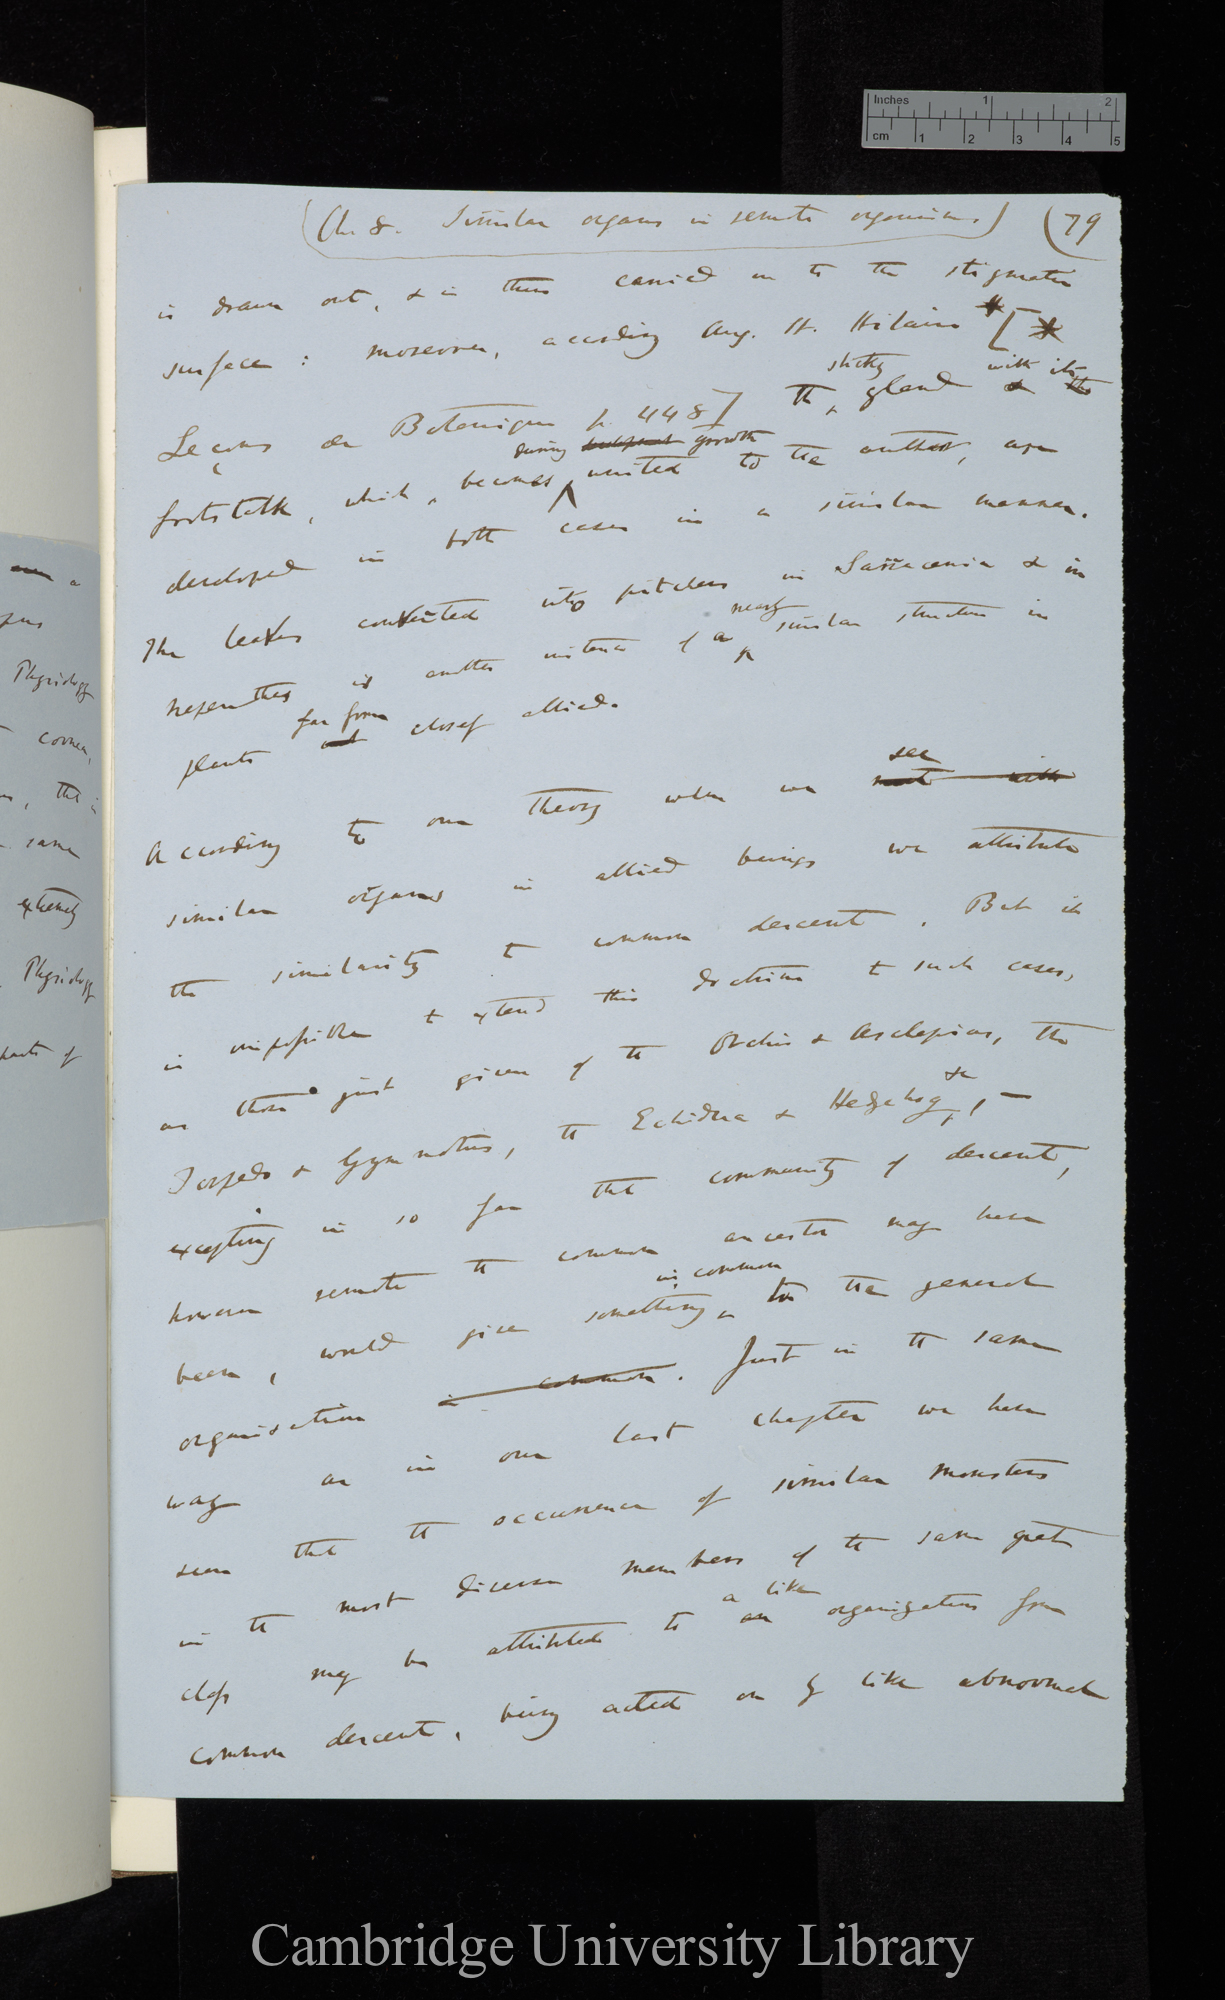 Inches 1 2
cm 1 2 3 4 5
(Ch. 8. Similar organs in remote organisms.) (79
is drawn out, & is thus carried on to the stigmatic
surface: moreover, according Aug. St. Hilaire * [*
sticky with its
Leçons de Botanique p. 448] The gland & the
during growth
footstalk, which, becomes united to the anther, are
developed in both cases in a similar manner.
The leaves converted into pitchers in Sarracenia & in
nearly
Nepenthes is another instance of a similar structure in
far from
plants not closely allied.
see
According to our theory when we meet with
similar organs in allied beings we attribute
the similarity to common descent. But it
is impossible to extend this doctrine to such cases,
as those just given of the Orchis & Asclepias, the
&c
Torpedo & Gymnotus, the Echidna & Hedgehog, —
excepting in so far that community of descent,
however remote the common ancestor may have
in common
been, would give something in the general
organisation in common. Just in the same
way as in our last chapter we have
seen that the occurrence of similar monsters
in the most diverse members of the same great
a like
class may be attributed to an organization from
common descent, being acted on by like abnormal
a
Physiology
cornea,
, that i
same
extremely
Physiology
parts of
Cambridge University Library